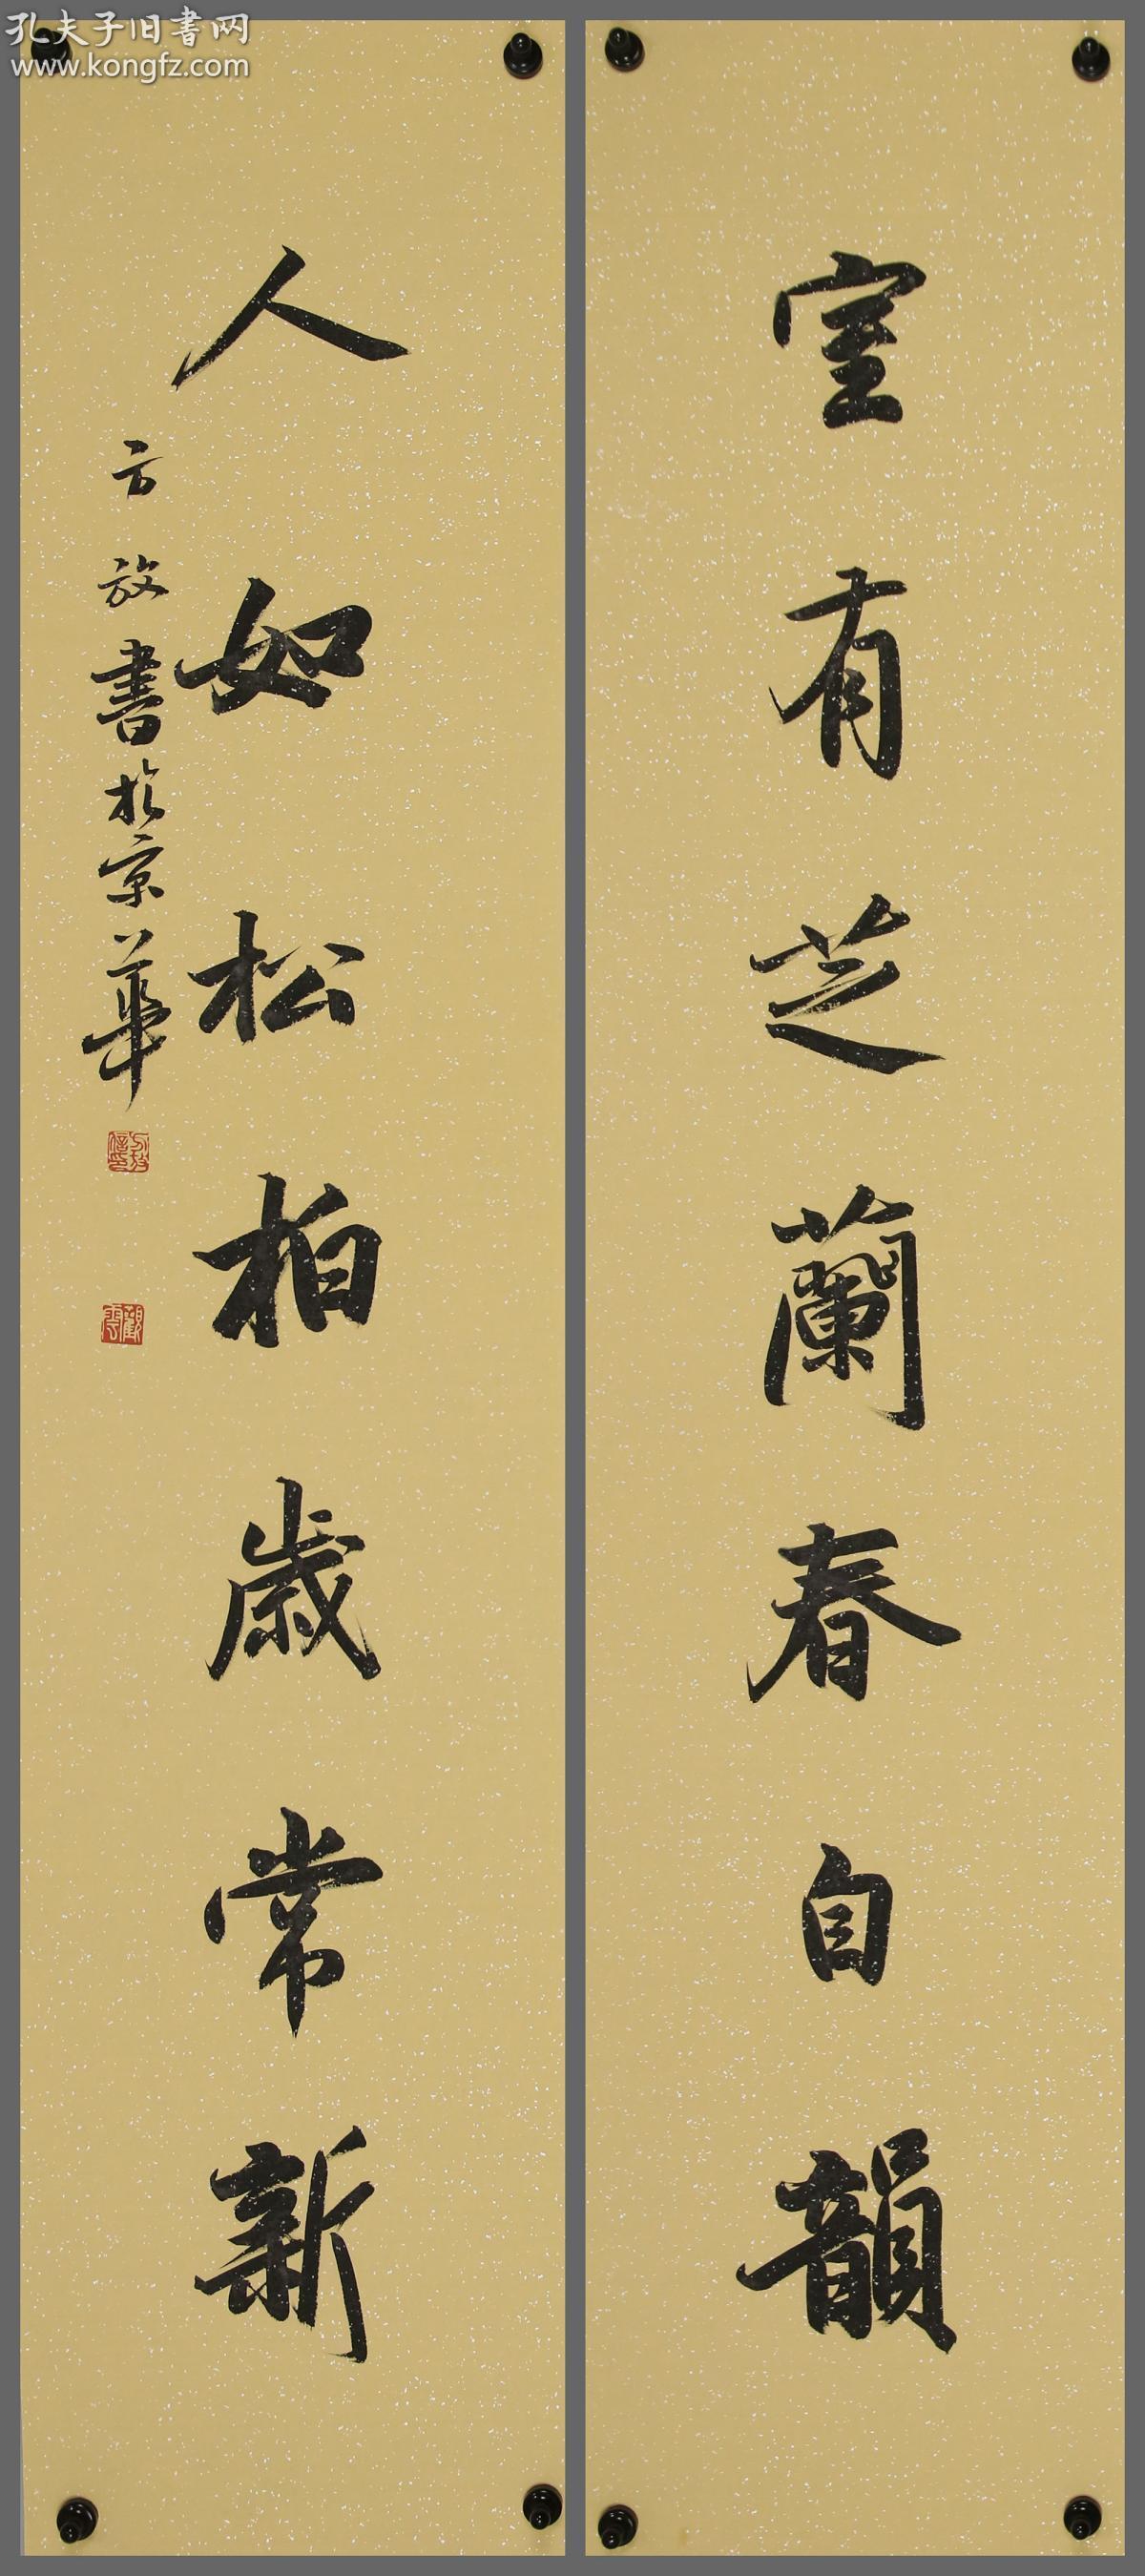 孔夫子旧書网
www.kongfz.com
室有芝蘭春自韻
人如松柏歲常新
方放書於京華